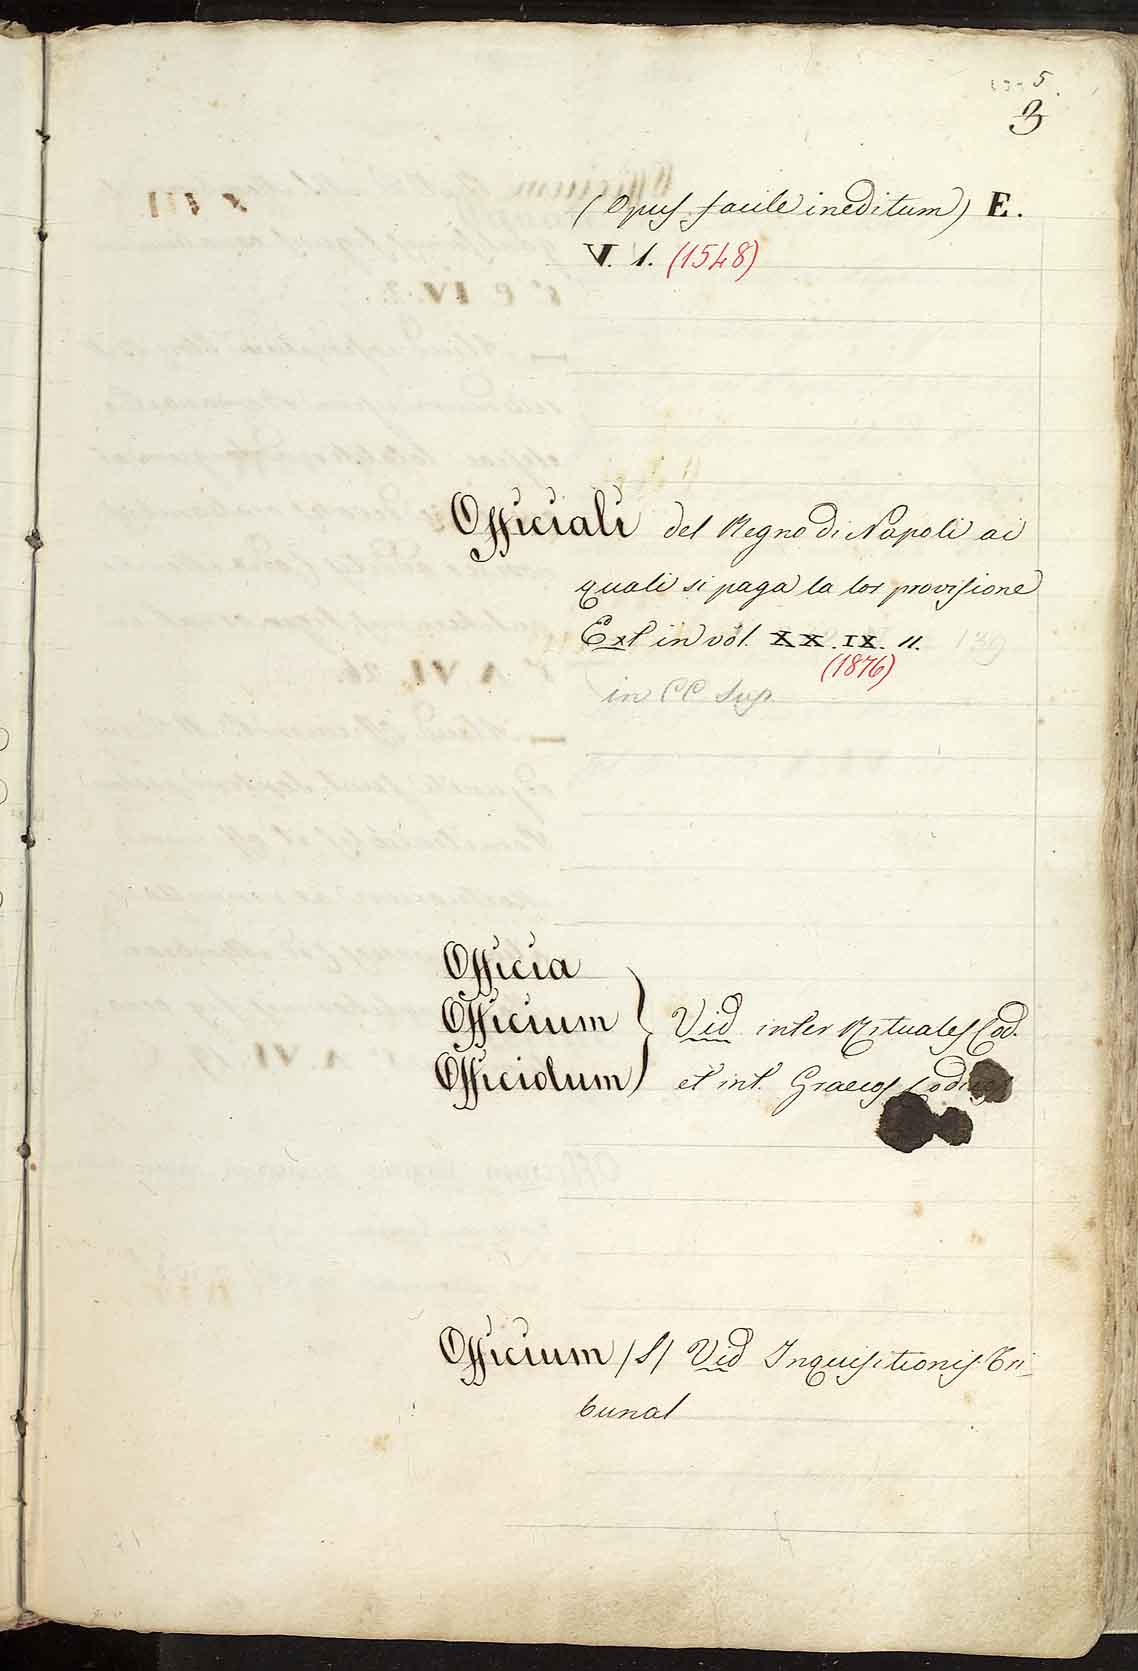 5
3
(Opus facile ineditum) E.
V. 1. (1548)
Officiali del Regno di Napoli ai
quali si paga la lor provisione
Ext in vol. XX. IX. 11. 139
(1876)
in CC Sup.
Officia
Officium } Vid inter Rituales Cod.
Officiolum et int. Graecos Codices
Officium (S) Vid Inquisitionis Tri-
bunal